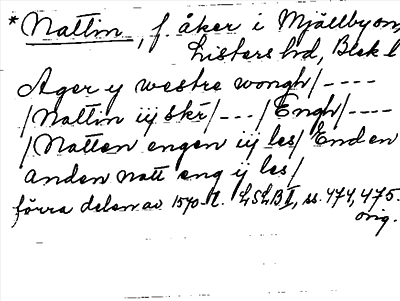 *Nattin, f. åker i Mjällby sn,
Listers hd, Blek l
Ager y westre wongh/----
/Nattin iij skr/---/Engh/----
/Natten engen iij les/ Enden
anden natt eng ij les/
förra delen av 1570-t. LSLB II, ss. 474, 475.
orig.